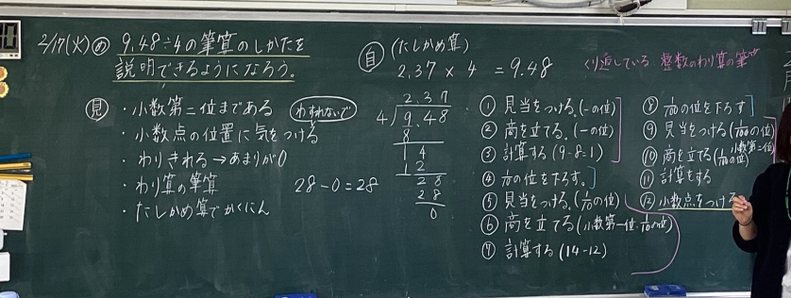 2/17(火) め 9.48÷4の筆算のしかたを
説明できるようになろう。
見 ・小数第二位まである
・小数点の位置に気をつける
わすれないで
・わりきれる→あまりが0
・わり算の筆算
・たしかめ算でかくにん
28-0=28
自 (たしかめ算)
2.37 × 4 = 9.48
くり返している 整数のわり算の筆算
2.37
4)9.48
8
14
12
28
28
0
① 見当をつける。(一の位)
② 商を立てる。(一の位)
③ 計算する(9-8=1)
④ 1/10の位を下ろす。
⑤ 見当をつける。(1/10の位)
⑥ 商を立てる(小数第一位・1/10の位)
⑦ 計算する(14-12)
⑧ 1/100の位を下ろす
⑨ 見当をつける(1/100の位)
⑩ 商を立てる(1/100の位)
小数第二位
⑪ 計算をする
⑫ 小数点をつける